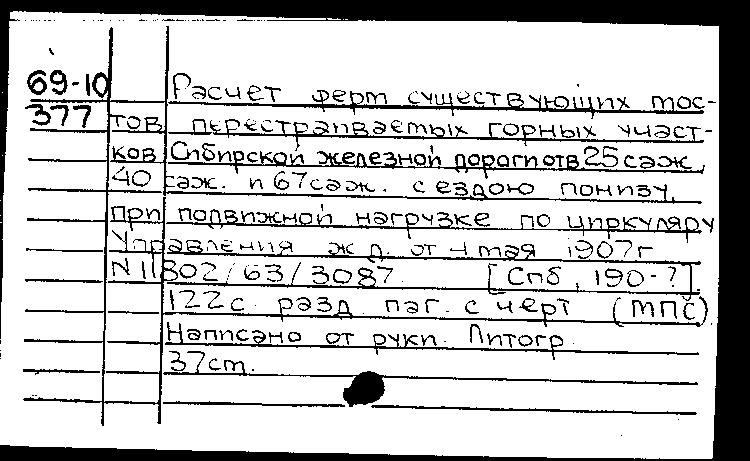 69-10
377
Расчет ферм существующих мос-
тов перестраиваемых горных участ-
ков Сибирской железной дороги отв. 25 саж,
40 саж. и 67 саж. с ездою понизу,
при подвижной нагрузке по циркуляру
Управления ж.д. от 4 мая 1907г
N 11802/63/3087. [Спб, 190-?]
122 с. разд паг. с черт (МПС)
Написано от руки. Литогр.
37 cm.